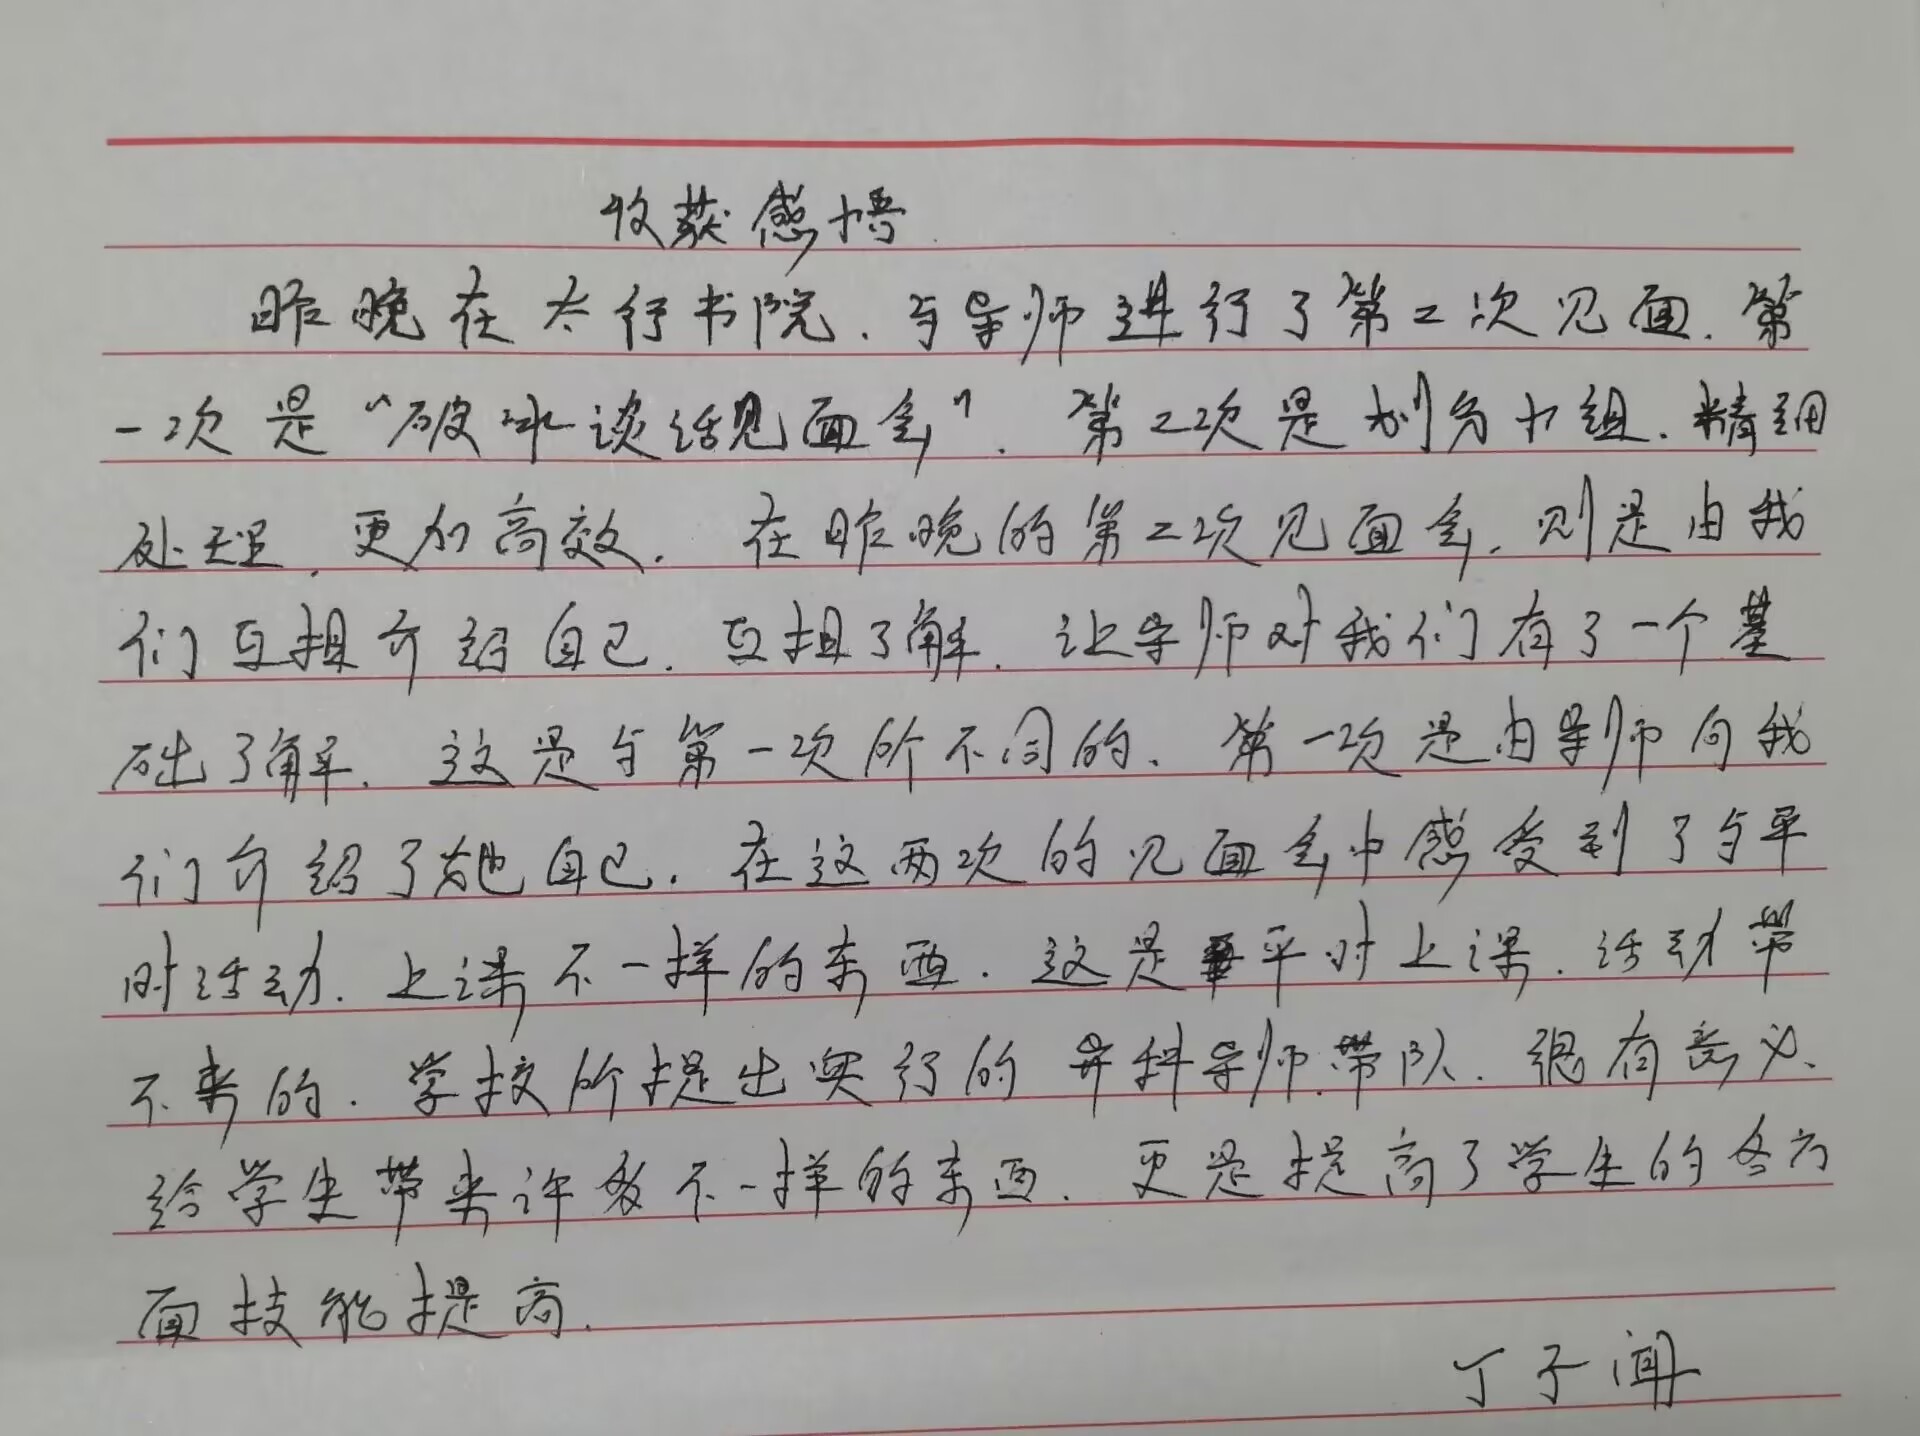 收获感悟
昨晚在太行书院.与导师进行了第二次见面.第
一次是“破冰谈话见面会”.第二次是划分小组.精细
处理.更加高效.在昨晚的第二次见面会.则是由我
们互相介绍自己.互相了解.让导师对我们有了一个基
础了解.这是与第一次所不同的.第一次是由导师向我
们介绍了她自己.在这两次的见面会中感受到了与平
时活动.上课不一样的东西.这是平时上课.活动带
不来的.学校所提出实行的 导师带队.很有意义、
给学生带来许多不一样的东西.更是提高了学生的各方
面技能提高.
丁子闻